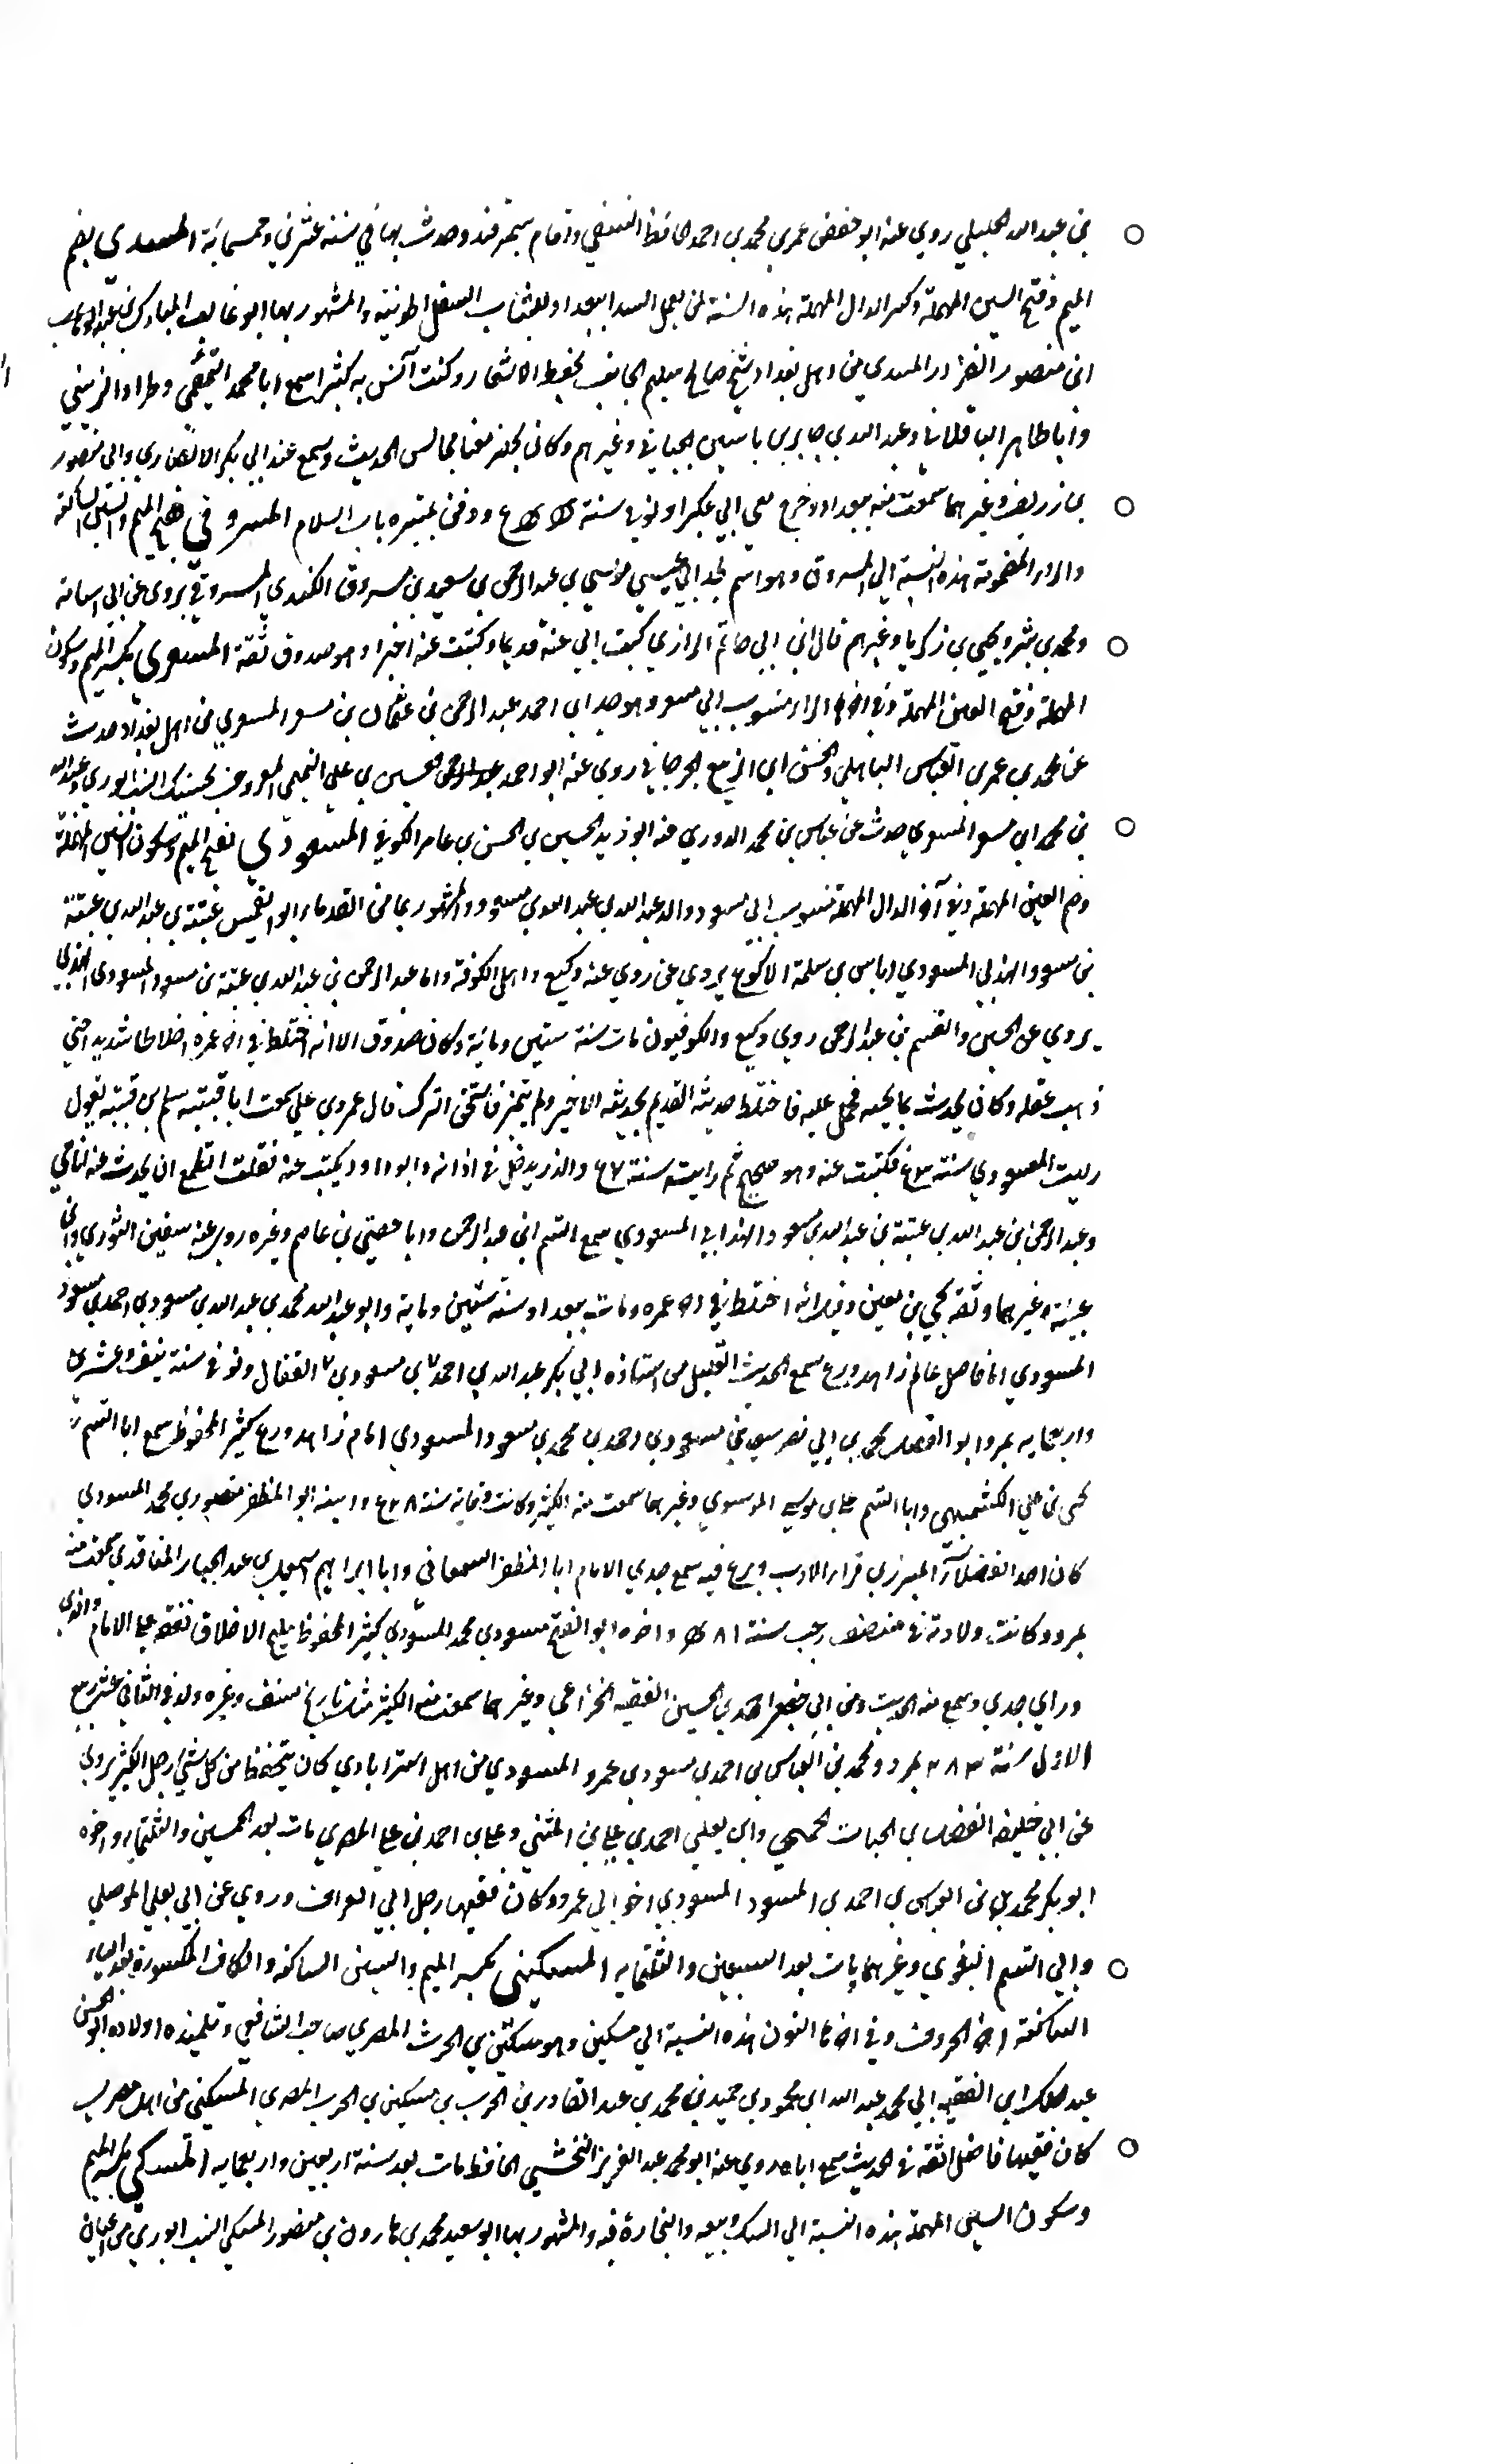 بن عبد الله الجليلي روي عنه ابو حفص عمر بن محمد بن احمد الحافظ النسفي واقام بسمرقند وحدث بها في سنة عشرين وخمسمائة المسدي بضم
الميم وفتح السين المهملة وكسر الدال المهملة هذه النسبة لمن يعمل السدا ببغداد للثياب السقلاطونية والمشهور بها ابو غالب المبارك بن عبد الوهاب
ابن منصور القزاز المسدي من اهل بغداد شيخ صالح سليم الجانب يحفظ الاشعار وكنت آنس به كثيرا سمع ابا محمد التميمي وطراد الزينبي
وابا طاهر الباقلاني وعبد الله بن جابر بن ياسين الجبائي وغيرهم وكان يحضر معنا مجالس الحديث وسمع عند ابي بكر الانصاري وابي منصور
بن زريق وغيرهما سمعت منه ببغداد وخرج معي الي عكبرا وتوفي سنة ودفن بمقبرة باب السلام المسروقي بفتح الميم والسين الساكنة
والراء المضمومة هذه النسبة الي المسروق وهو اسم لجد ابي عيسي موسي بن عبد الرحمن بن سعيد بن مسروق الكندي المسروقي يروي عن ابي اسامة
ومحمد بن بشر ويحيي بن زكريا وغيرهم قال ابن ابي حاتم الرازي كتبت الي عنه قديما وكتبت عنه اخيرا وهو صدوق ثقة المسعري بكسر الميم وسكون
المهملة وفتح العين المهملة وفي اخرها الراء منسوب الي مسعر وهو جد ابي احمد عبد الرحمن بن عثمان بن مسعر المسعري من اهل بغداد حدث
عن محمد بن عمر بن العباس الباهلي والحسن ابي الربيع الجرجاني روي عنه ابو احمد الحسين بن علي التميمي المعروف بحسينك النيسابوري وعبد الله
بن محمد ابي مسعر المسعري حدث عن عباس بن محمد الدوري عنه ابو زيد الحسين بن الحسن بن عامر الكوفي المسعودي بفتح الميم وسكون السين المهملة
وضم العين المهملة وفي آخر الدال المهملة منسوب الي مسعود والد عبد الله بن عبد الله بن مسعود والمشهور بها من القدماء ابو العميس عتبة بن عبد الله بن عتبة
بن مسعود الهذلي المسعودي اياس بن سلمة الاكوع يروي عن روي عنه وكيع واهل الكوفة واما عبد الرحمن بن عبد الله بن عتبة بن مسعود المسعودي الهذلي
يروي عن الحسين والقسم بن عبد الرحمن روي وكيع والكوفيون مات سنة ستين ومائة وكان صدوق الا انه اختلط في اخر عمره اختلاطا شديدا حتي
ذهب عقله وكان يحدث بما يجيه فحمل عليه فاختلط حديثه القديم بحديثه الاخير ولم يتميز فاستحق الترك قال عمرو بن علي سمعت ابا قتيبة سلم بن قتيبة يقول
رايت المسعودي سنة فكتبت عنه وهو صحيح ثم رايته سنة والذر يدخل في اذانه وابو داود يكتب عنه فقلت اتطمع ان يحدث عنه انا حي
وعبد الرحمن بن عبد الله بن عتبة بن عبد الله بن مسعود الهذلي المسعودي سمع القسم ابن عبد الرحمن وابا حصين بن عاصم وغيره روي عنه سفين الثوري وابن
عيينة وغيرهما وثقه يحيي بن معين وقيل انه اختلط في اخر عمره ومات ببغداد سنة ستين وماية وابو عبد الله محمد بن عبد الله بن مسعود بن احمد بن مسعود
المسعودي اما فاضل عالم زاهد ورع سمع الحديث القليل من استاذه ابي بكر عبد الله بن احمد بن مسعود القفال وتوفي سنة نيف وعشرين
واربعمايه بمرو وابو الفضل محمد بن ابي نصر سعيد بن مسعود بن احمد بن محمد بن مسعود المسعودي امام زاهد ورع كثير المحفوظ سمع ابا القسم
يحيي بن علي الكشميهني وابا القسم علي بن موسي الموسوي وغيرهما سمعت منه الكثير وكانت وفاته سنة وابنه ابو المظفر منصور بن محمد المسعودي
كان احد الفضلاء المبرزين قرا الادب وبرع فيه سمع جدي الامام ابا المظفر السمعاني وابا ابراهيم اسمعيل بن عبد الجبار الناقدي سمعت منه
بمرو وكانت ولادته في منتصف رجب سنة واخوه ابو الفتح مسعود بن محمد المسعودي كثير المحفوظ مليح الاخلاق تفقه علي الامام والدي
وراي جدي وسمع منه الحديث ومن ابي جعفر احمد بن الحسين الفقيه الخزاعي وغيرهما سمعت منه الكثير مثل تاريخ نسف وغيره ولد في الثاني عشر ربيع
الاول سنة بمرو ومحمد بن العباس بن احمد بن مسعود بن عمرو المسعودي من اهل استراباد كان يتحفظ من كل شي رجل الكثير روي
عن ابي خليفة الفضل بن الحباب الجمحي وابي يعلي احمد بن علي بن المثني وعلي بن احمد بن علي المصري مات بعد الخمسين والثلثمايه واخوه
ابو بكر محمد بن العباس بن احمد بن المسعود المسعودي اخو ابي عمرو وكان فقيها رحل الي العراق وروي عن ابي يعلي الموصلي
وابي القسم البغوي وغيرهما مات بعد السبعين والثلثمايه المسكيني بكسر الميم والسين الساكنة والكاف المكسورة بعد الياء
الساكنة اخر الحروف وفي اخرها النون هذه النسبة الي مسكين وهو مسكين بن الحرث المصري صاحب الشافعي وتلميذه اولاده ابو الحسن
عبد الملك ابن الفقيه ابي محمد عبد الله ابن محمود بن حميد بن محمد بن عبد القادر بن الحرث بن مسكين بن الحرث المصري المسكيني من اهل مصر
كان فقيها فاضلا ثقة في الحديث سمع اباه روي عنه ابو محمد عبد العزيز النخشبي الحافظ مات بعد سنة اربعين واربعمايه المسكي بكسر الميم
وسكون السين المهملة هذه النسبة الي المسك وبيعه والتجارة فيه والمشهور بها ابو سعيد محمد بن هارون بن منصور المسكي النيسابوري من اعيان